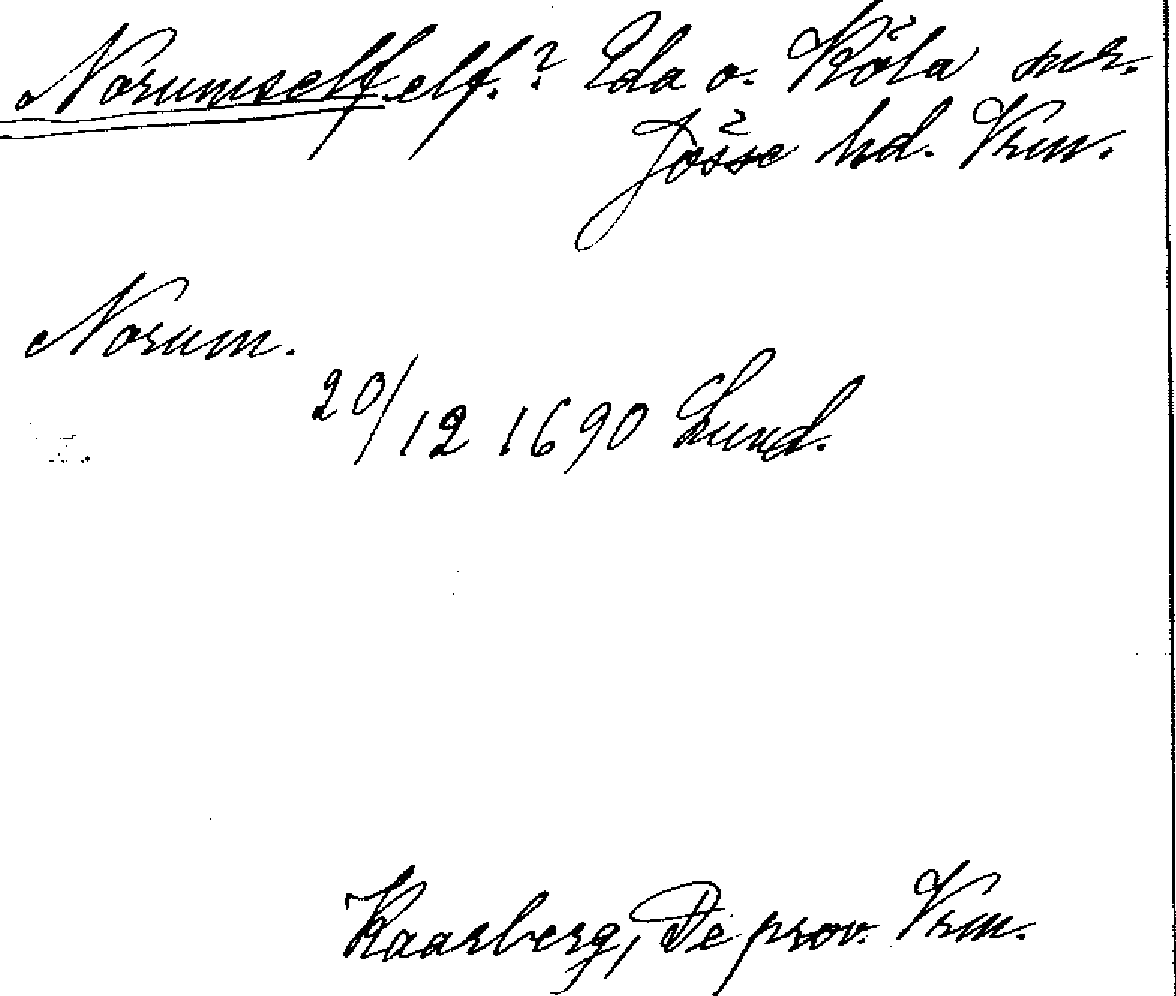 Norumself. elf.? Eda o. Köla snr.
Jösse hd. Vrm.
Norum.
20/12 1690 Lund.
Kaarberg, De prov. Vrm.